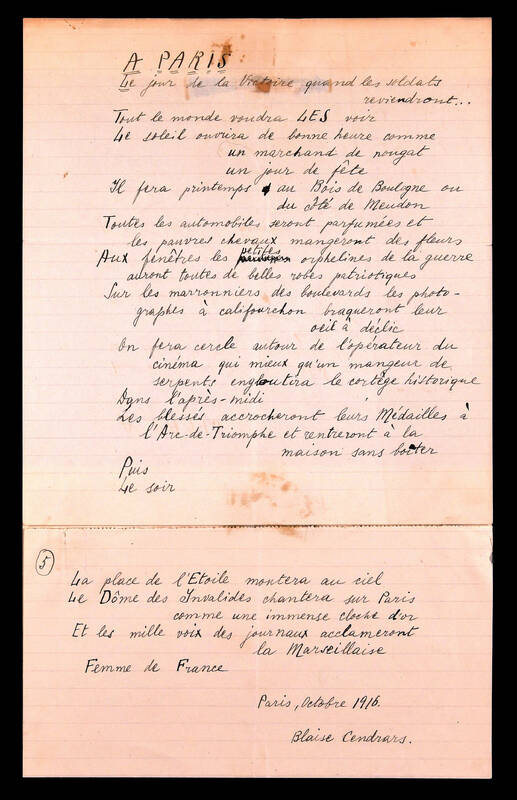 A PARIS
Le jour de la Victoire quand les soldats
reviendront...
Tout le monde voudra LES voir
Le soleil ouvrira de bonne heure comme
un marchand de nougat
un jour de fête
Il fera printemps au Bois de Boulogne ou
du Côté de Meudon
Toutes les automobiles seront parfumées et
les pauvres chevaux mangeront des fleurs
Aux fenêtres les petites orphelines de la guerre
auront toutes de belles robes patriotiques
Sur les marronniers des boulevards les photo-
graphes à califourchon braqueront leur
oeil à déclic
On fera cercle autour de l'opérateur du
cinéma qui mieux qu'un mangeur de
serpents engloutira le cortège historique
Dans l'après-midi
Les blessés accrocheront leurs Médailles à
l'Arc-de-Triomphe et rentreront à la
maison sans boiter
Puis
Le soir
5
La place de l'Etoile montera au ciel
Le Dôme des Invalides chantera sur Paris
comme une immense cloche d'or
Et les mille voix des journaux acclameront
la Marseillaise
Femme de France
Paris, Octobre 1916.
Blaise Cendrars.